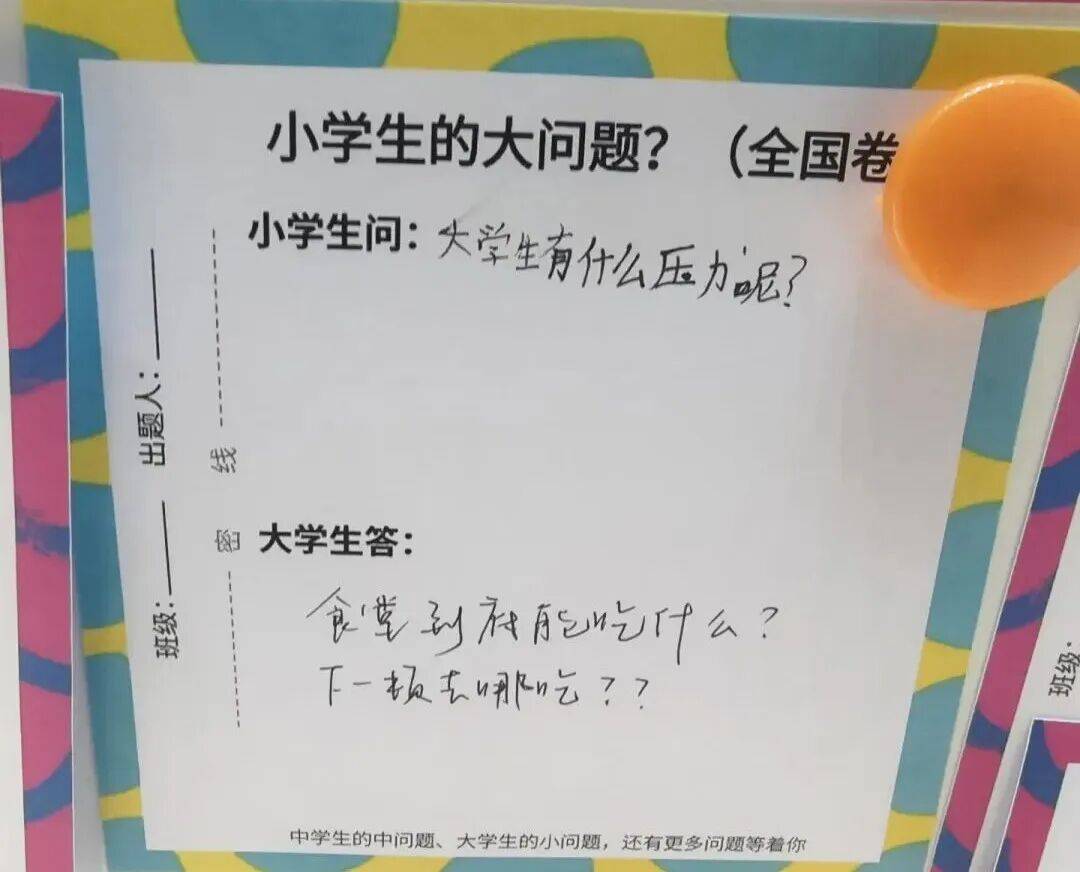 小学生的大问题？（全国卷
小学生问：大学生有什么压力呢？
出题人：
线
密
班级：
大学生答：
食堂到底能吃什么？
下一顿去哪吃？？
中学生的中问题、大学生的小问题，还有更多问题等着你
班级：